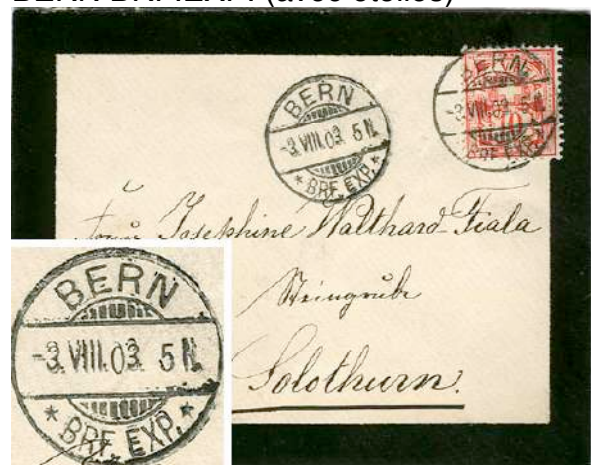 BERN BRF.EXP. (avec étoiles)
BERN
-3.VIII.03. 5 N.
* BRF. EXP. *
BERN
-3.VIII.03.
BRF. EXP.
10
Frau Josephine Walthard-Fiala
Steingrube
Solothurn.
BERN
-3.VIII.03. 5 N.
* BRF. EXP. *